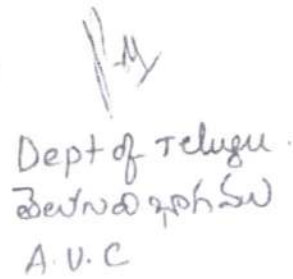 Dept of Telugu.
తెలుగు భాగము
A.V.C